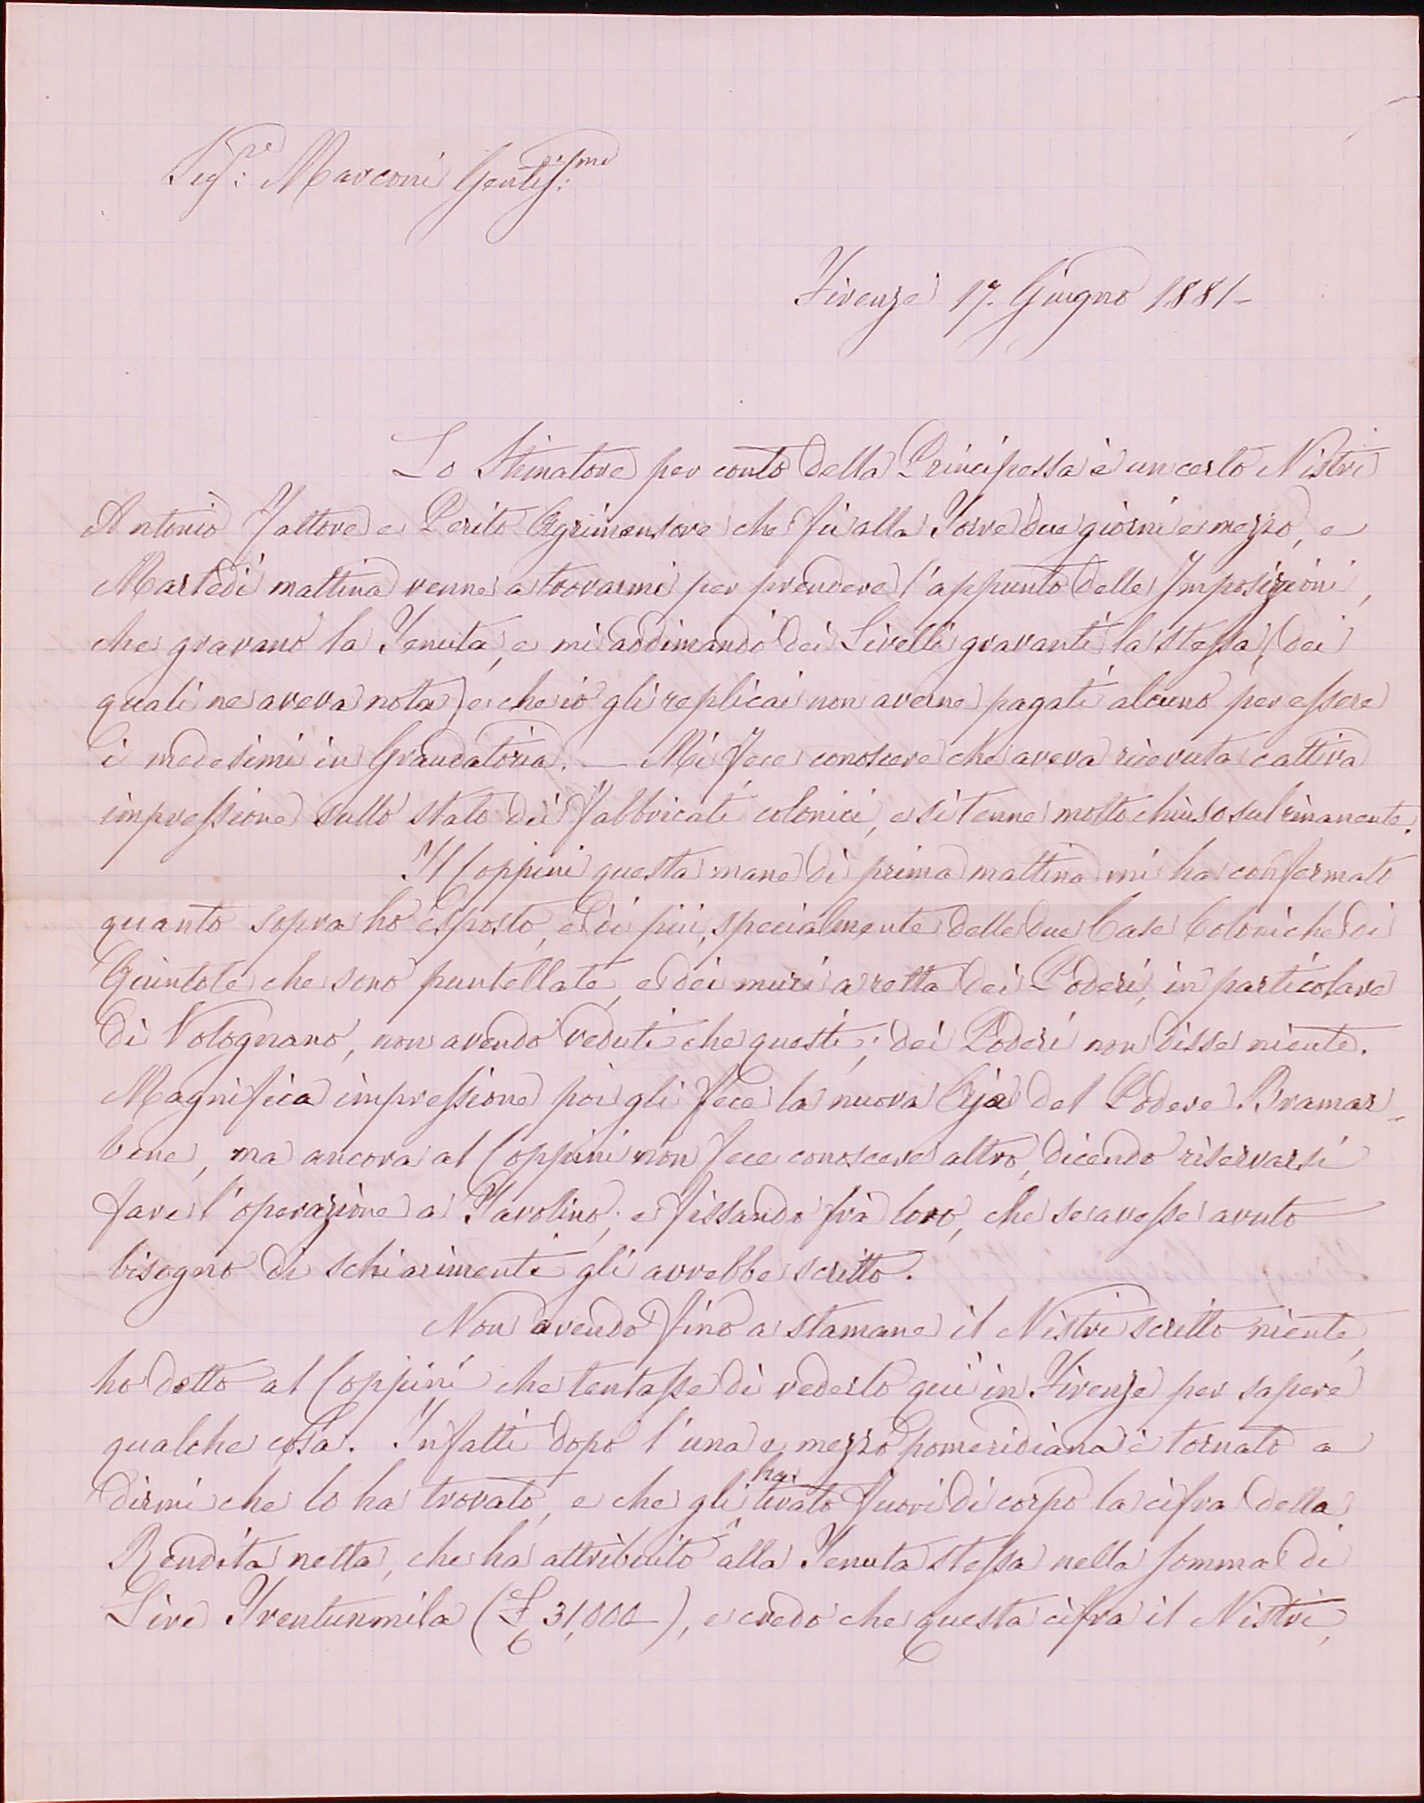 Sig.re Marconi Gentiss.mo
Firenze 17. Giugno 1881-
Lo Stimatore per conto della Principessa è un certo Nistri
Antonio Fattore e Perito Agrimensore che fù alla Torre due giorni e mezzo, e
Martedì mattina venne a trovarmi per prendere l'appunto delle Imposizioni,
che gravano la Tenuta, e mi addimandò dei Livelli gravanti la stessa, (dei
quali ne aveva nota) e che io gli replicai non averne pagati alcuno per essere
i medesimi in Graudatoria. — Mi fece conoscere che aveva ricevuta cattiva
impressione sullo stato dei fabbricati colonici, e si tenne molto chiuso sul rimanente.
Il Coppini questa mane di prima mattina mi ha confermato
quanto sopra ho esposto, e di più, specialmente delle due Case Coloniche di
Quintole che sono puntellate, e dei muri a retta dei Poderi, in particolare
di Volognano, non avendo veduti che questi; dei Poderi non disse niente.
Magnifica impressione poi gli fece la nuova Aja del Podere Bramar_
bene, ma ancora al Coppini non fece conoscere altro, dicendo riservarsi
fare l'operazione a Tavolino; e fissando frà loro, che se avesse avuto
bisogno di schiarimenti gli avrebbe scritto.
Non avendo fino a stamane il Nistri scritto niente,
ho detto al Coppini che tentasse di vederlo quì in Firenze per sapere
qualche cosa. Infatti dopo l'una e mezzo pomeridiana è tornato a
dirmi che lo ha trovato, e che gli ha tirato fuori di corpo la cifra della
Rendita netta, che ha attribuito alla Tenuta stessa nella somma di
Lire Trentunmila (£ 31,000-), e credo che questa cifra il Nistri,